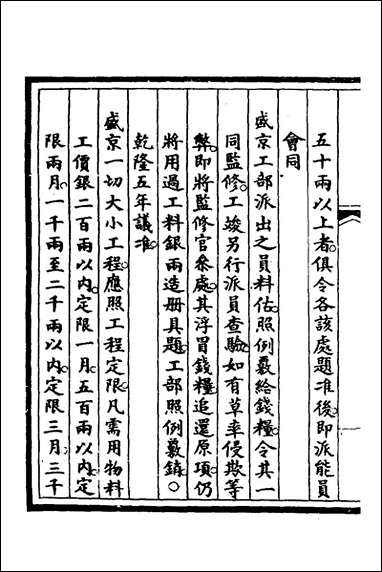 五十兩以上者俱令各該處題准後即派能員
會同
盛京工部派出之員料估照例覈給錢糧令其一
同監修工竣另行派員查驗如有草率侵欺等
弊即將監修官叅處其浮冒錢糧追還原項仍
將用過工料銀兩造册具題工部照例覈銷○
乾隆五年議准
盛京一切大小工程應照工程定限凡需用物料
工價銀二百兩以内定限一月五百兩以内定
限兩月一千兩至二千兩以内定限三月三千